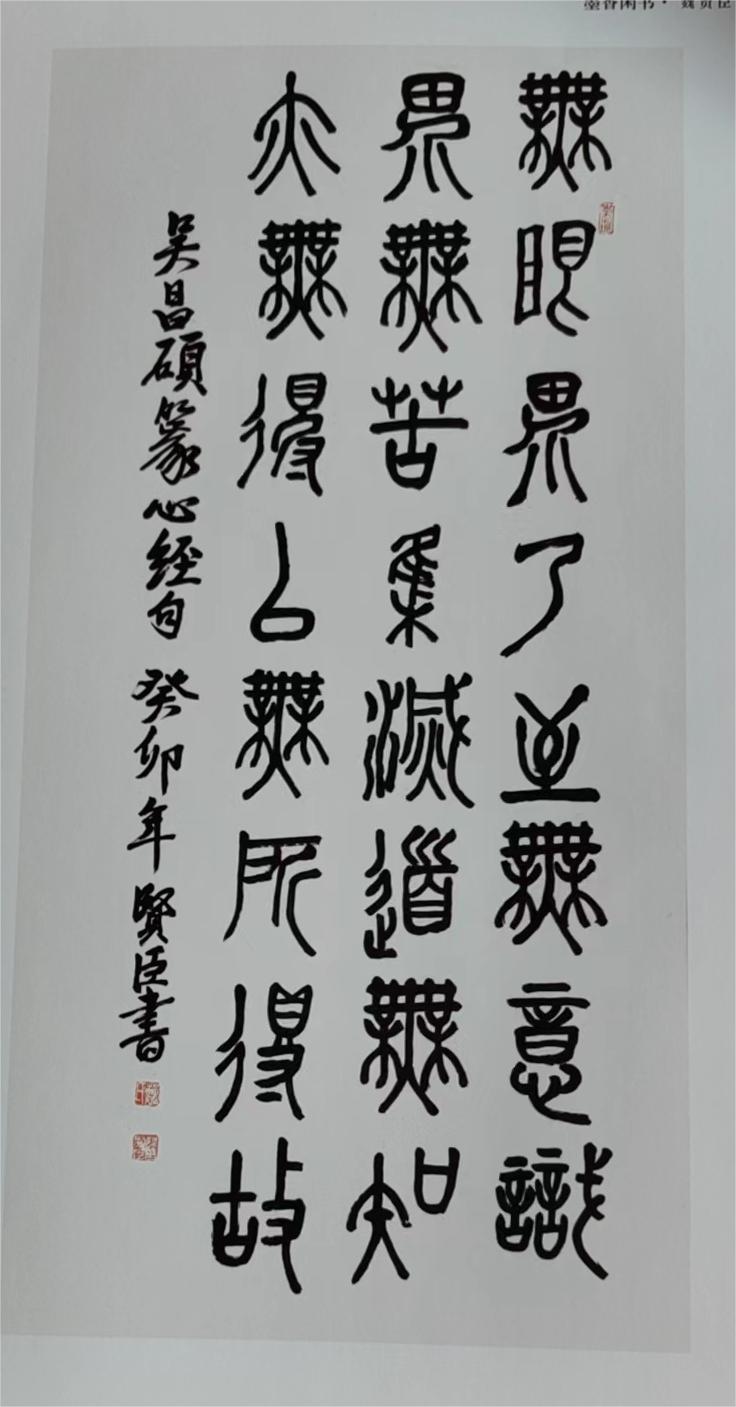 無眼界乃至無意識
界無苦集滅道無知
亦無得以無所得故
吴昌碩篆心經句 癸卯年賢臣書